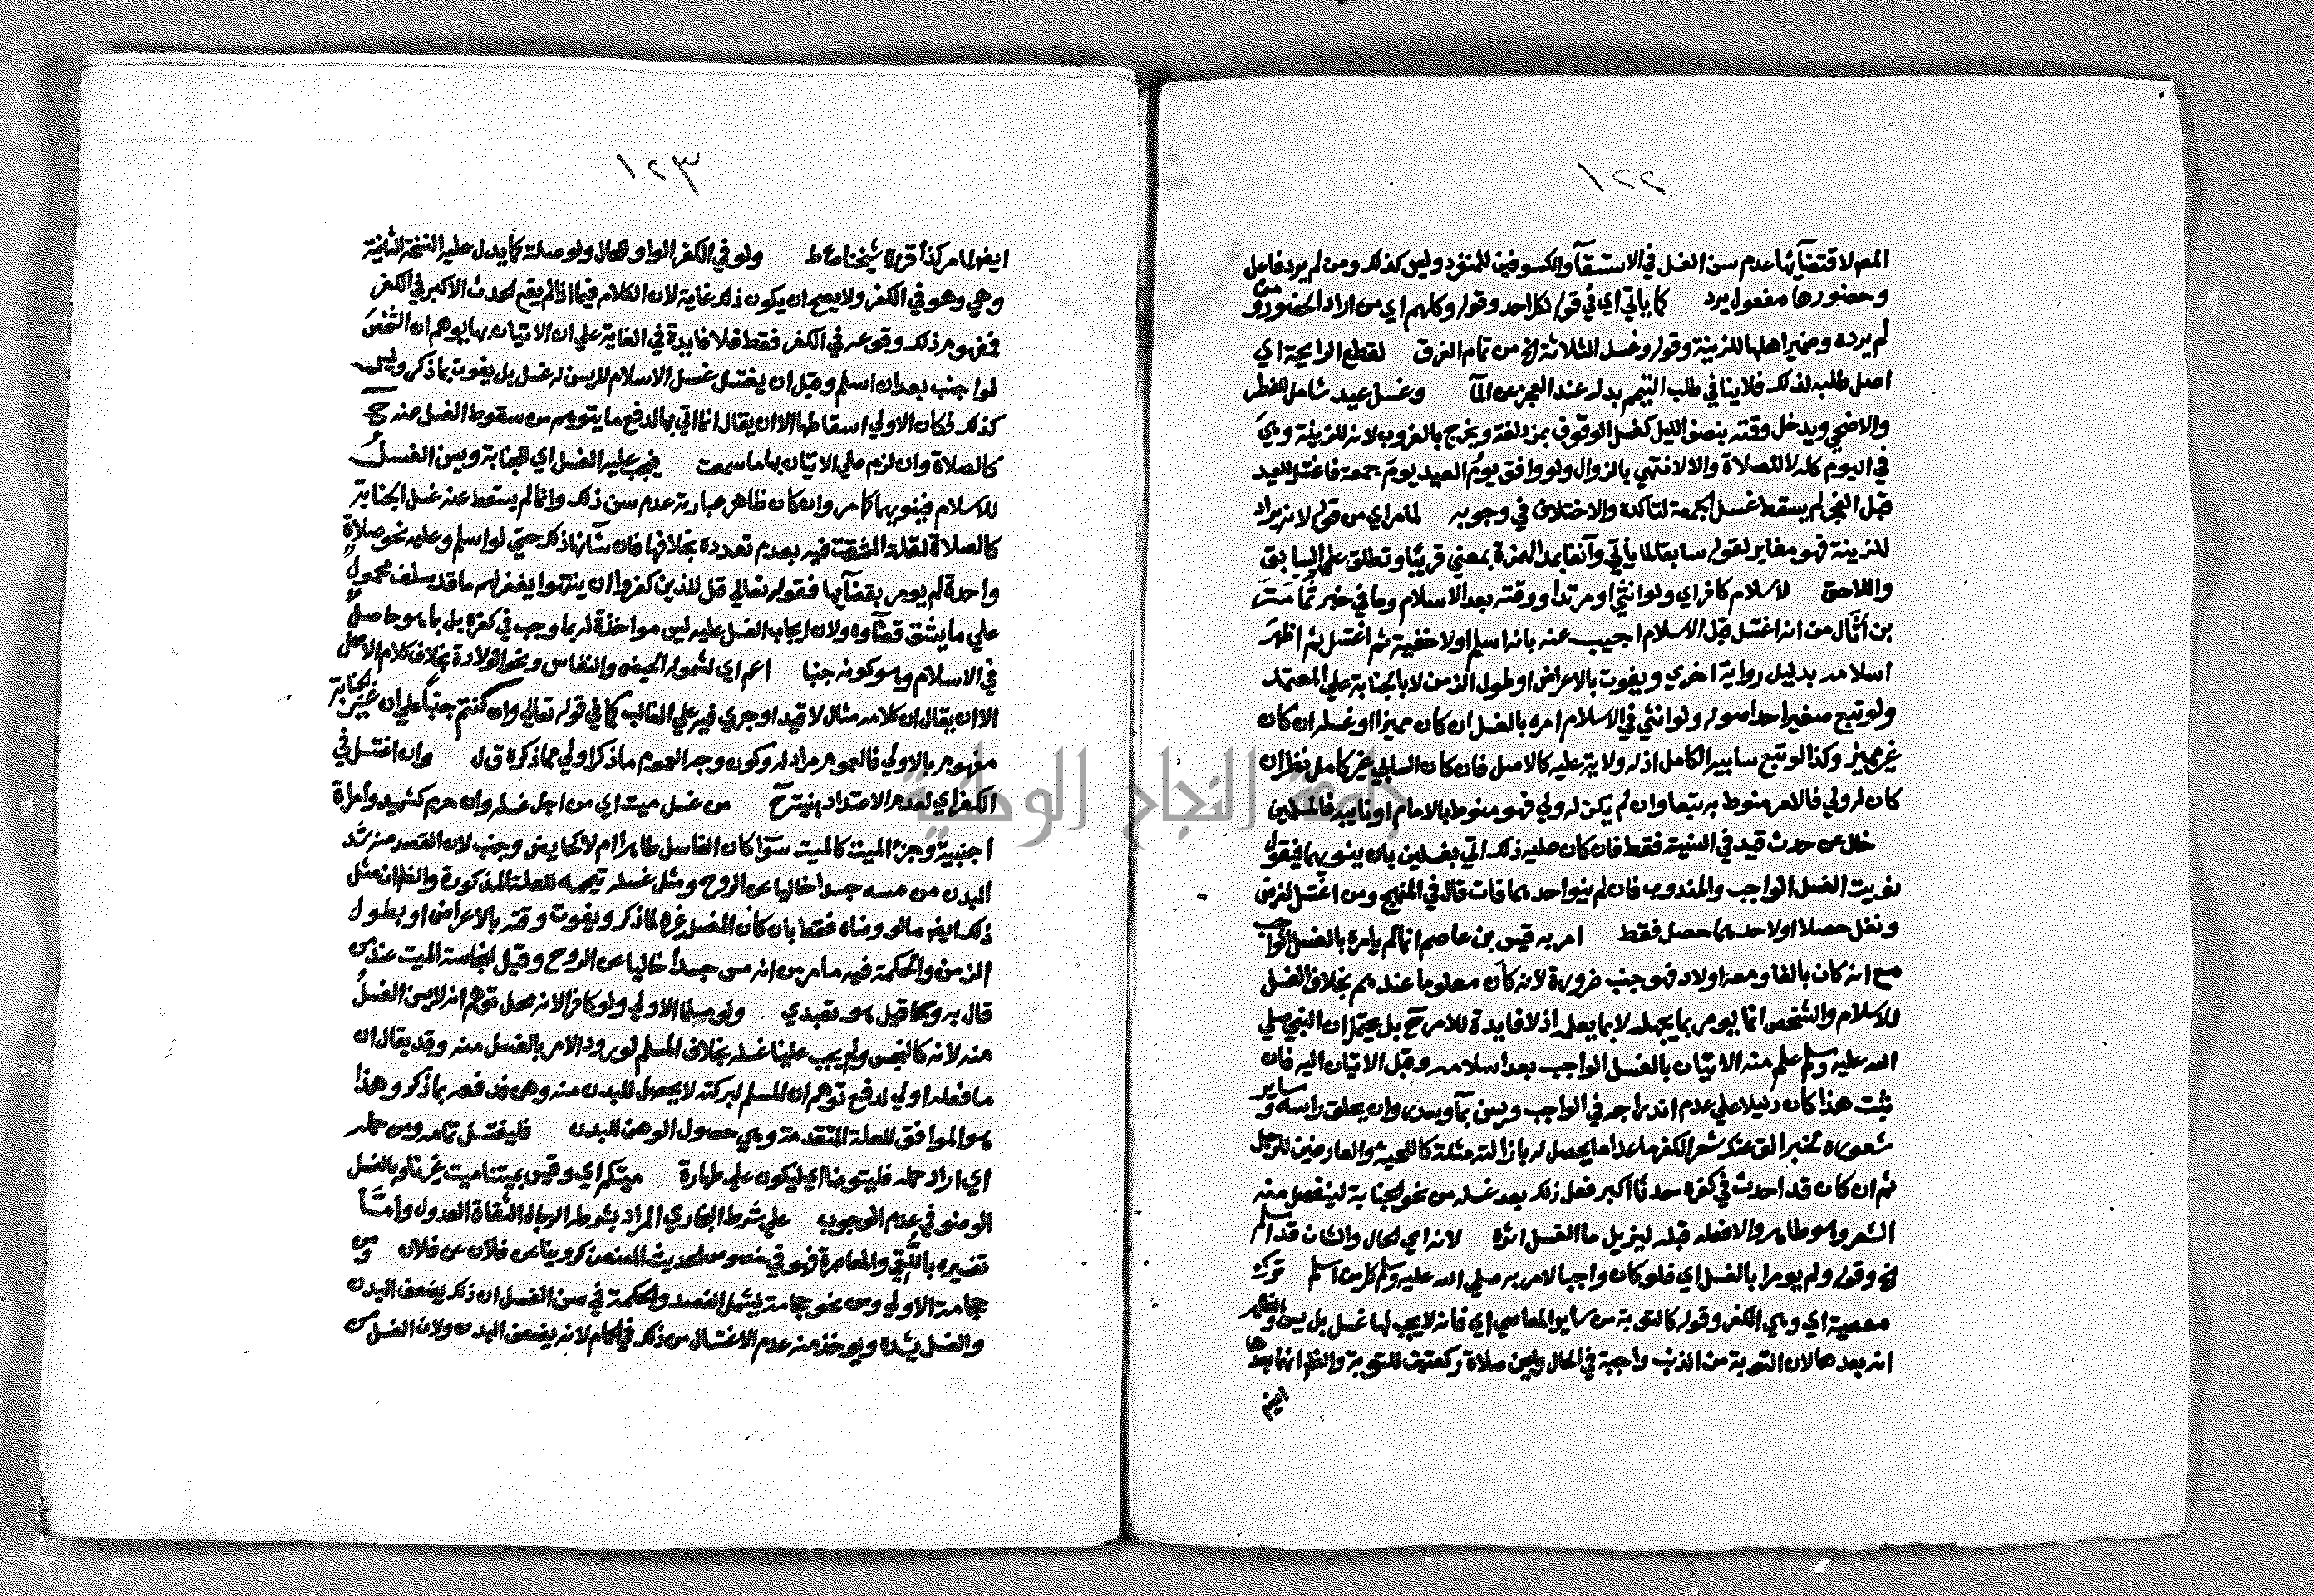 ١٢٢
المص لاقتضائها عدم سن الغسل في الاستسقآ والكسوفين للمنفرد وليس كذلك ومن لم يرد فاعل
وحضورها مفعول يرد كما ياتي اي في قوله لكل احد وقوله وكلهم اي من اراد الحضور ومن
لم يرده وضمير اهلها للزينة وقوله وغسل الثلاثة الخ من تمام الفرق لقطع الرايحة اي
اصل طلبه لذلك فلا ينافي طلب التيمم بدله عند العجز عن المآ وغسل عيد شامل للفطر
والاضحى ويدخل وقته بنصف الليل كغسل الوقوف بمزدلفة ويخرج بالغروب لانه للزينة وهي
في اليوم كله لا للصلاة والا لانتهي بالزوال ولو وافق يوم العيد يوم جمعة فاغتسل للعيد
قبل الفجر لم يسقط غسل الجمعة لتاكده والاختلاف في وجوبه لمامر اي من قوله لانه يراد
للزينة فهو مغاير لقوله سابقا لما ياتي وآنفا بمد الهمزة بمعني قريبا وتطلق علي السابق
واللاحق لاسلام كافر اي ولو انثي او مرتدا ووقته بعد الاسلام وما في خبر ثمامت
بن اثال من انه اغتسل قبل الاسلام اجيب عنه بانه اسلم اولا خفية ثم اغتسل ثم اظهر
اسلامه بدليل رواية اخري ويفوت بالاعراض او طول الزمن لا بالجنابة علي المعتمد
ولو تبع صغير احد اصوله ولو انثي في الاسلام امره بالغسل ان كان مميزا او غسله ان كان
غير مميز وكذا لو تبع سابيه الكامل اذ له ولاية عليه كالاصل فان كان السابي غير كامل نظر ان
كان له ولي فالامر منوط به تبعا وان لم يكن له ولي فهو منوط بالامام او نايبه فالمسلمين
خال عن حدث قيد في السنية فقط فان كان عليه ذلك اتي بغسلين بان ينويهما فيقول
نويت الغسل الواجب والمندوب فان لم ينو احدهما فات قال في المنهج ومن اغتسل لفرض
ونفل حصلا او لاحدهما حصل فقط امر به قيس بن عاصم انما لم يامره بالغسل الواجب
مع انه كان بالغا ومعه اولاد فهو جنب ضرورة لانه كان معلوما عندهم بخلاف الغسل
للاسلام والشخص انما يومر بما يجهله لا بما يعلمه اذ لا فايدة للامر ح بل يحتمل ان النبي صلي
الله عليه وسلم علم منه الاتيان بالغسل الواجب بعد اسلامه وقبل الاتيان اليه فان
ثبت هذا كان دليلا علي عدم اندراجه في الواجب ويسن بمآ وسدر وان يحلق راسه وساير
شعوره لخبر الق عنك شعر الكفر ما عدا ما يحصل له بازالته مثلة كاللحية والعارضين للرجل
ثم ان كان قد احدث في كفره حدثا اكبر فعل ذلك بعد غسله من نحو الجنابة لينفصل منه
الشعر وهو طاهر والا فعله قبله ليزيل ما الغسل اثره لانه اي الحال والشان قد اسلم
الخ وقوله ولم يومرا بالغسل اي فلو كان واجبا لامر به صلي الله عليه وسلم كل من اسلم تركت
معصية اي وهي الكفر وقوله كالتوبة من ساير المعاصي اي فانه لا يجب لها غسل بل يسن والظاهر
انه بعدها لان التوبة من الذنب واجبة في الحال ويسن صلاة ركعتين للتوبة والظ انها بعدها
ايض
١٢٣
ايض لمامر كذا قرره شيخنا عط ولو في الكفر الواو للحال ولو صلة كما يدل عليه النسخة الثانية
وهي وهو في الكفر ولا يصح ان يكون ذلك غاية لان الكلام فيما اذا لم يقع الحدث الاكبر في الكفر
فمفهوم ذلك وقوعه في الكفر فقط فلا فايدة في الغاية علي ان الاتيان بها يوهم ان الشخص
لو اجنب بعد ان اسلم وقبل ان يغتسل غسل الاسلام لا يسن له غسل بل يفوت بما ذكر وليس
كذلك فكان الاولي اسقاطها الا ان يقال انما اتي بها لدفع ما يتوهم من سقوط الغسل عنه ح
كالصلاة وان لزم علي الاتيان بها ما سمعت فيجب عليه الغسل اي للجنابة ويسن الغسل
للاسلام فينويهما كامر وان كان ظاهر عبارته عدم سن ذلك وانما لم يسقط عنه غسل الجنابة
كالصلاة لقلة المشقت فيه بعدم تعدده بخلافها فان شانها ذلك حتي لو اسلم وعليه نحو صلاة
واحدة لم يومر بقضآيها فقوله تعالي قل للذين كفروا ان ينتهوا يغفر لهم ما قد سلف محمول
علي ما يشق قضاوه ولان ايجاب الغسل عليه ليس مواخذة له بما وجب في كفره بل بما هو حاصل
في الاسلام وهو كونه جنبا اعم اي لشموله الحيض والنفاس ونحو الولادة بخلاف كلام الاصل
الا ان يقال ان كلامه مثال لا قيد او جري فيه علي الغالب كما في قوله تعالي وان كنتم جنبا علي ان غير الجنابة
مفهوم بالاولي فالعموم مراد له وكون وجه العموم ما ذكر اولي مما ذكره ق ل وان اغتسل في
الكفر اي لعدم الاعتداد بنيته ح من غسل ميت اي من اجل غسله وان حرم كشهيد وامراة
اجنبية وجزء الميت كالميت سوآ كان الغاسل طاهرا ام لا كحايض وجنب لان القصد منه شد
البدن من مسه جسدا خاليا عن الروح ومثل غسله تيممه للعلة المذكورة والظ ان مثل
ذلك ايض ما لو وضاه فقط بان كان المغسل غيره لما ذكر ويفوت وقته بالاعراض او بطول
الزمن والحكمة فيه مامر من انه مس جسدا خاليا عن الروح وقيل لنجاسة الميت عند من
قال به وكما قيل هو تعبدي ولو مسلما الاولي ولو كافرا لانه محل توهم انه لا يسن الغسل
منه لانه كالنجس ولم يجب علينا غسله بخلاف المسلم لورود الامر بالغسل منه وقد يقال ان
ما فعله اولي لدفع توهم ان المسلم لبركته لا يحصل للبدن منه وهن فدفعه بما ذكر وهذا
هو الموافق للعلة المتقدمة وهي حصول الوهن للبدن فليغتسل تمامه ومن حمله
اي اراد حمله فليتوضا اي ليكون علي طهارة ميتكم اي وقيس بميتنا ميت غيرنا وبالغسل
الوضو في عدم الوجوب علي شرط البخاري المراد بشرطه الرجال الثقاة العدول وامّا
تفسيره باللُّقي والمعاصرة فهو في خصوص الحديث المعنعن كروينا عن فلان عن فلان ومن
حجامة الاولي ومن نحو حجامة ليشمل الفصد والحكمة في سن الغسل ان ذلك يضعف البدن
والغسل يشده ويوخذ منه عدم الاغتسال من ذلك في الحمام لانه يضعف البدن ولان الغسل من